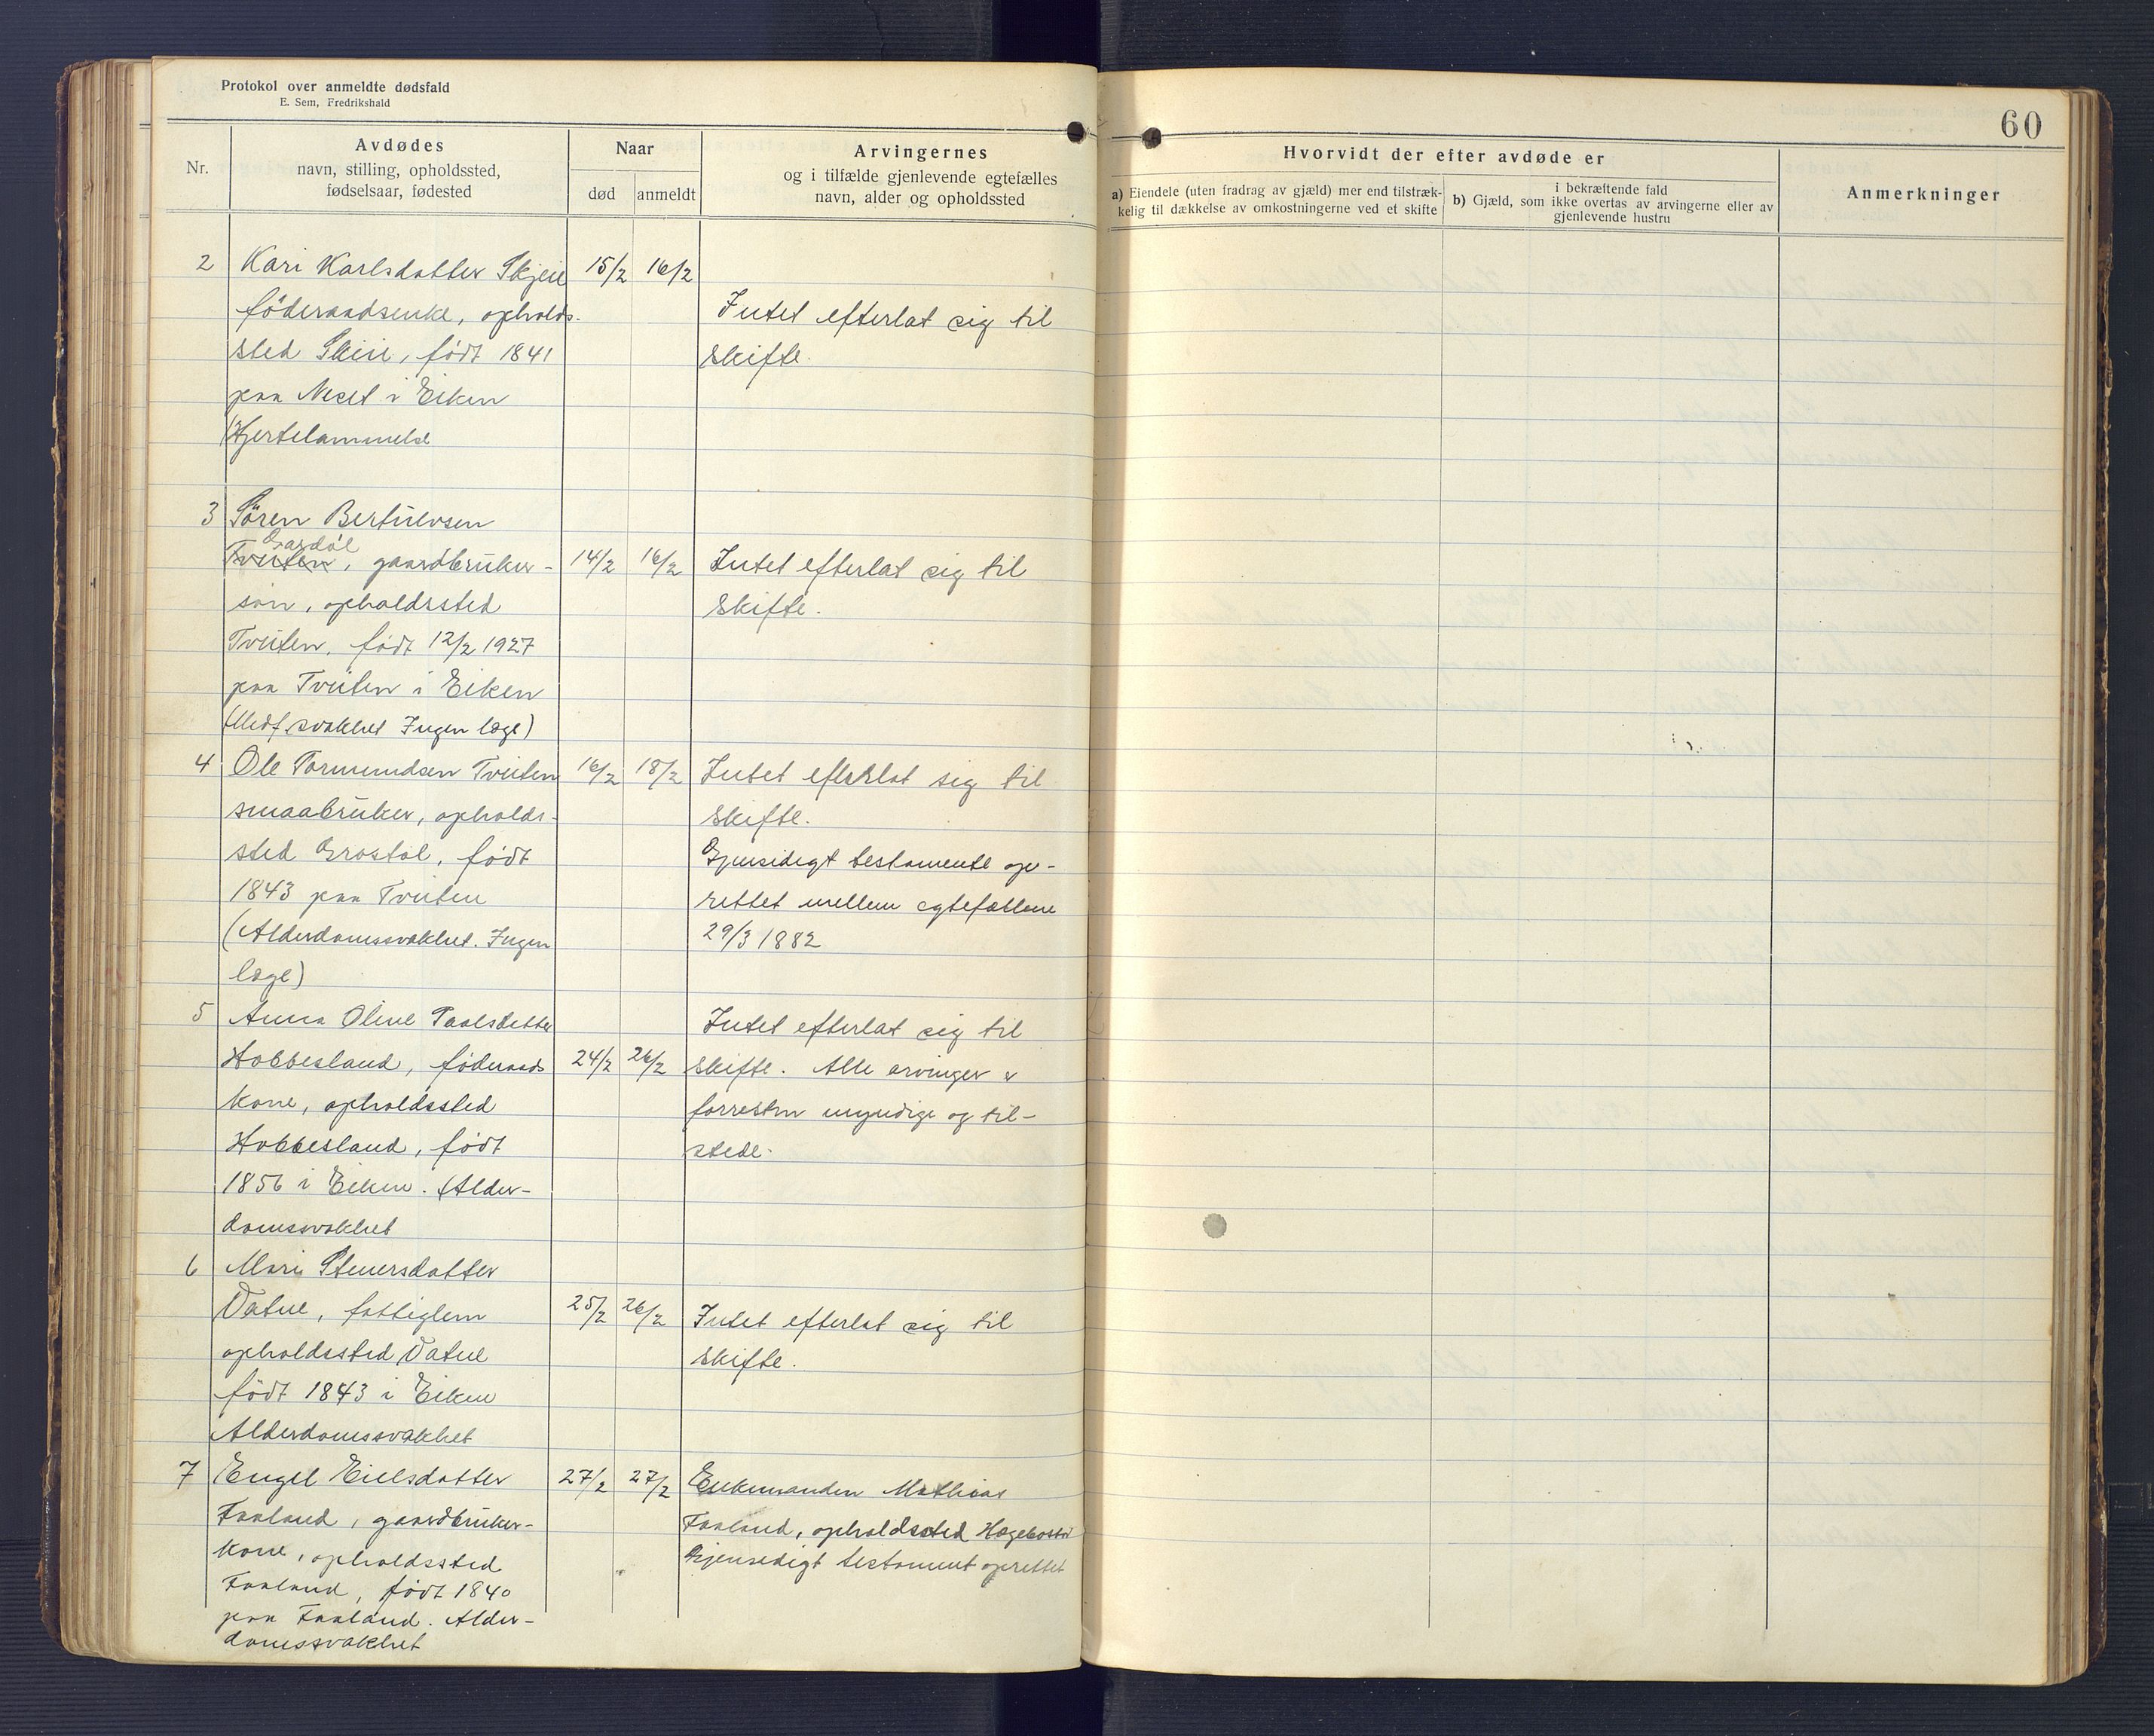 Protokol over anmeldte dødsfald
E. Sem, Fredrikshald
60
Nr.
Avdødes
navn, stilling, opholdssted,
fødselsaar, fødested
Naar
død
anmeldt
Arvingernes
og i tilfælde gjenlevende egtefælles
navn, alder og opholdssted
Hvorvidt der efter avdøde er
a) Eiendele (uten fradrag av gjæld) mer end tilstræk-
kelig til dækkelse av omkostningerne ved et skifte
i bekræftende fald
b) Gjæld, som ikke overtas av arvingerne eller av
gjenlevende hustru
Anmerkninger
2 Kari Karlsdatter Skjeie 15/2 16/2
föderaadsenke, opholds-
sted Skeie, född 1841
paa Neset i Eiken
(Hjertelammelse
Intet efterlat sig til
skifte.
3 Sören Bertulvsen
Gardöl
Tveiten, gaardbruker- 14/2 16/2 Intet efterlat sig til
sön, opholdssted skifte.
Tveiten, född 12/2 1927
paa Tveiten i Eiken
(Medf. svakhet Ingen læge)
4 Ole Tormundsen Tveiten 16/2 18/2 Intet efterlat sig til
smaabruker, opholds- skifte.
sted Grostöl, född Gjensidigt testamente op-
1843 paa Tveiten rettet mellem egtefællene
(Alderdomssvakhet. Ingen 29/3 1882
læge)
5 Anna Oline Paalsdatter Intet efterlat sig til
Hobbesland, föderaads 24/2 26/2 skifte. Alle arvinger er
kone, opholdssted forresten myndige og til-
Hobbesland, född stede.
1856 i Eiken. (Alder-
domssvakhet
6 Mari Stenersdatter
Vatne, fattiglem 25/2 26/2 Intet efterlat sig til
opholdssted Vatne skifte.
född 1843 i Eiken
Alderdomssvakhet
7 Engel Eielsdatter 27/2 27/2 Enkemanden Mathias
Faaland, gaardbruker- Faaland, opholdssted Hægebostad
kone, opholdssted Gjensedigt testament oprettet
Faaland, född 1840
paa Faaland. Alder-
domssvakhet